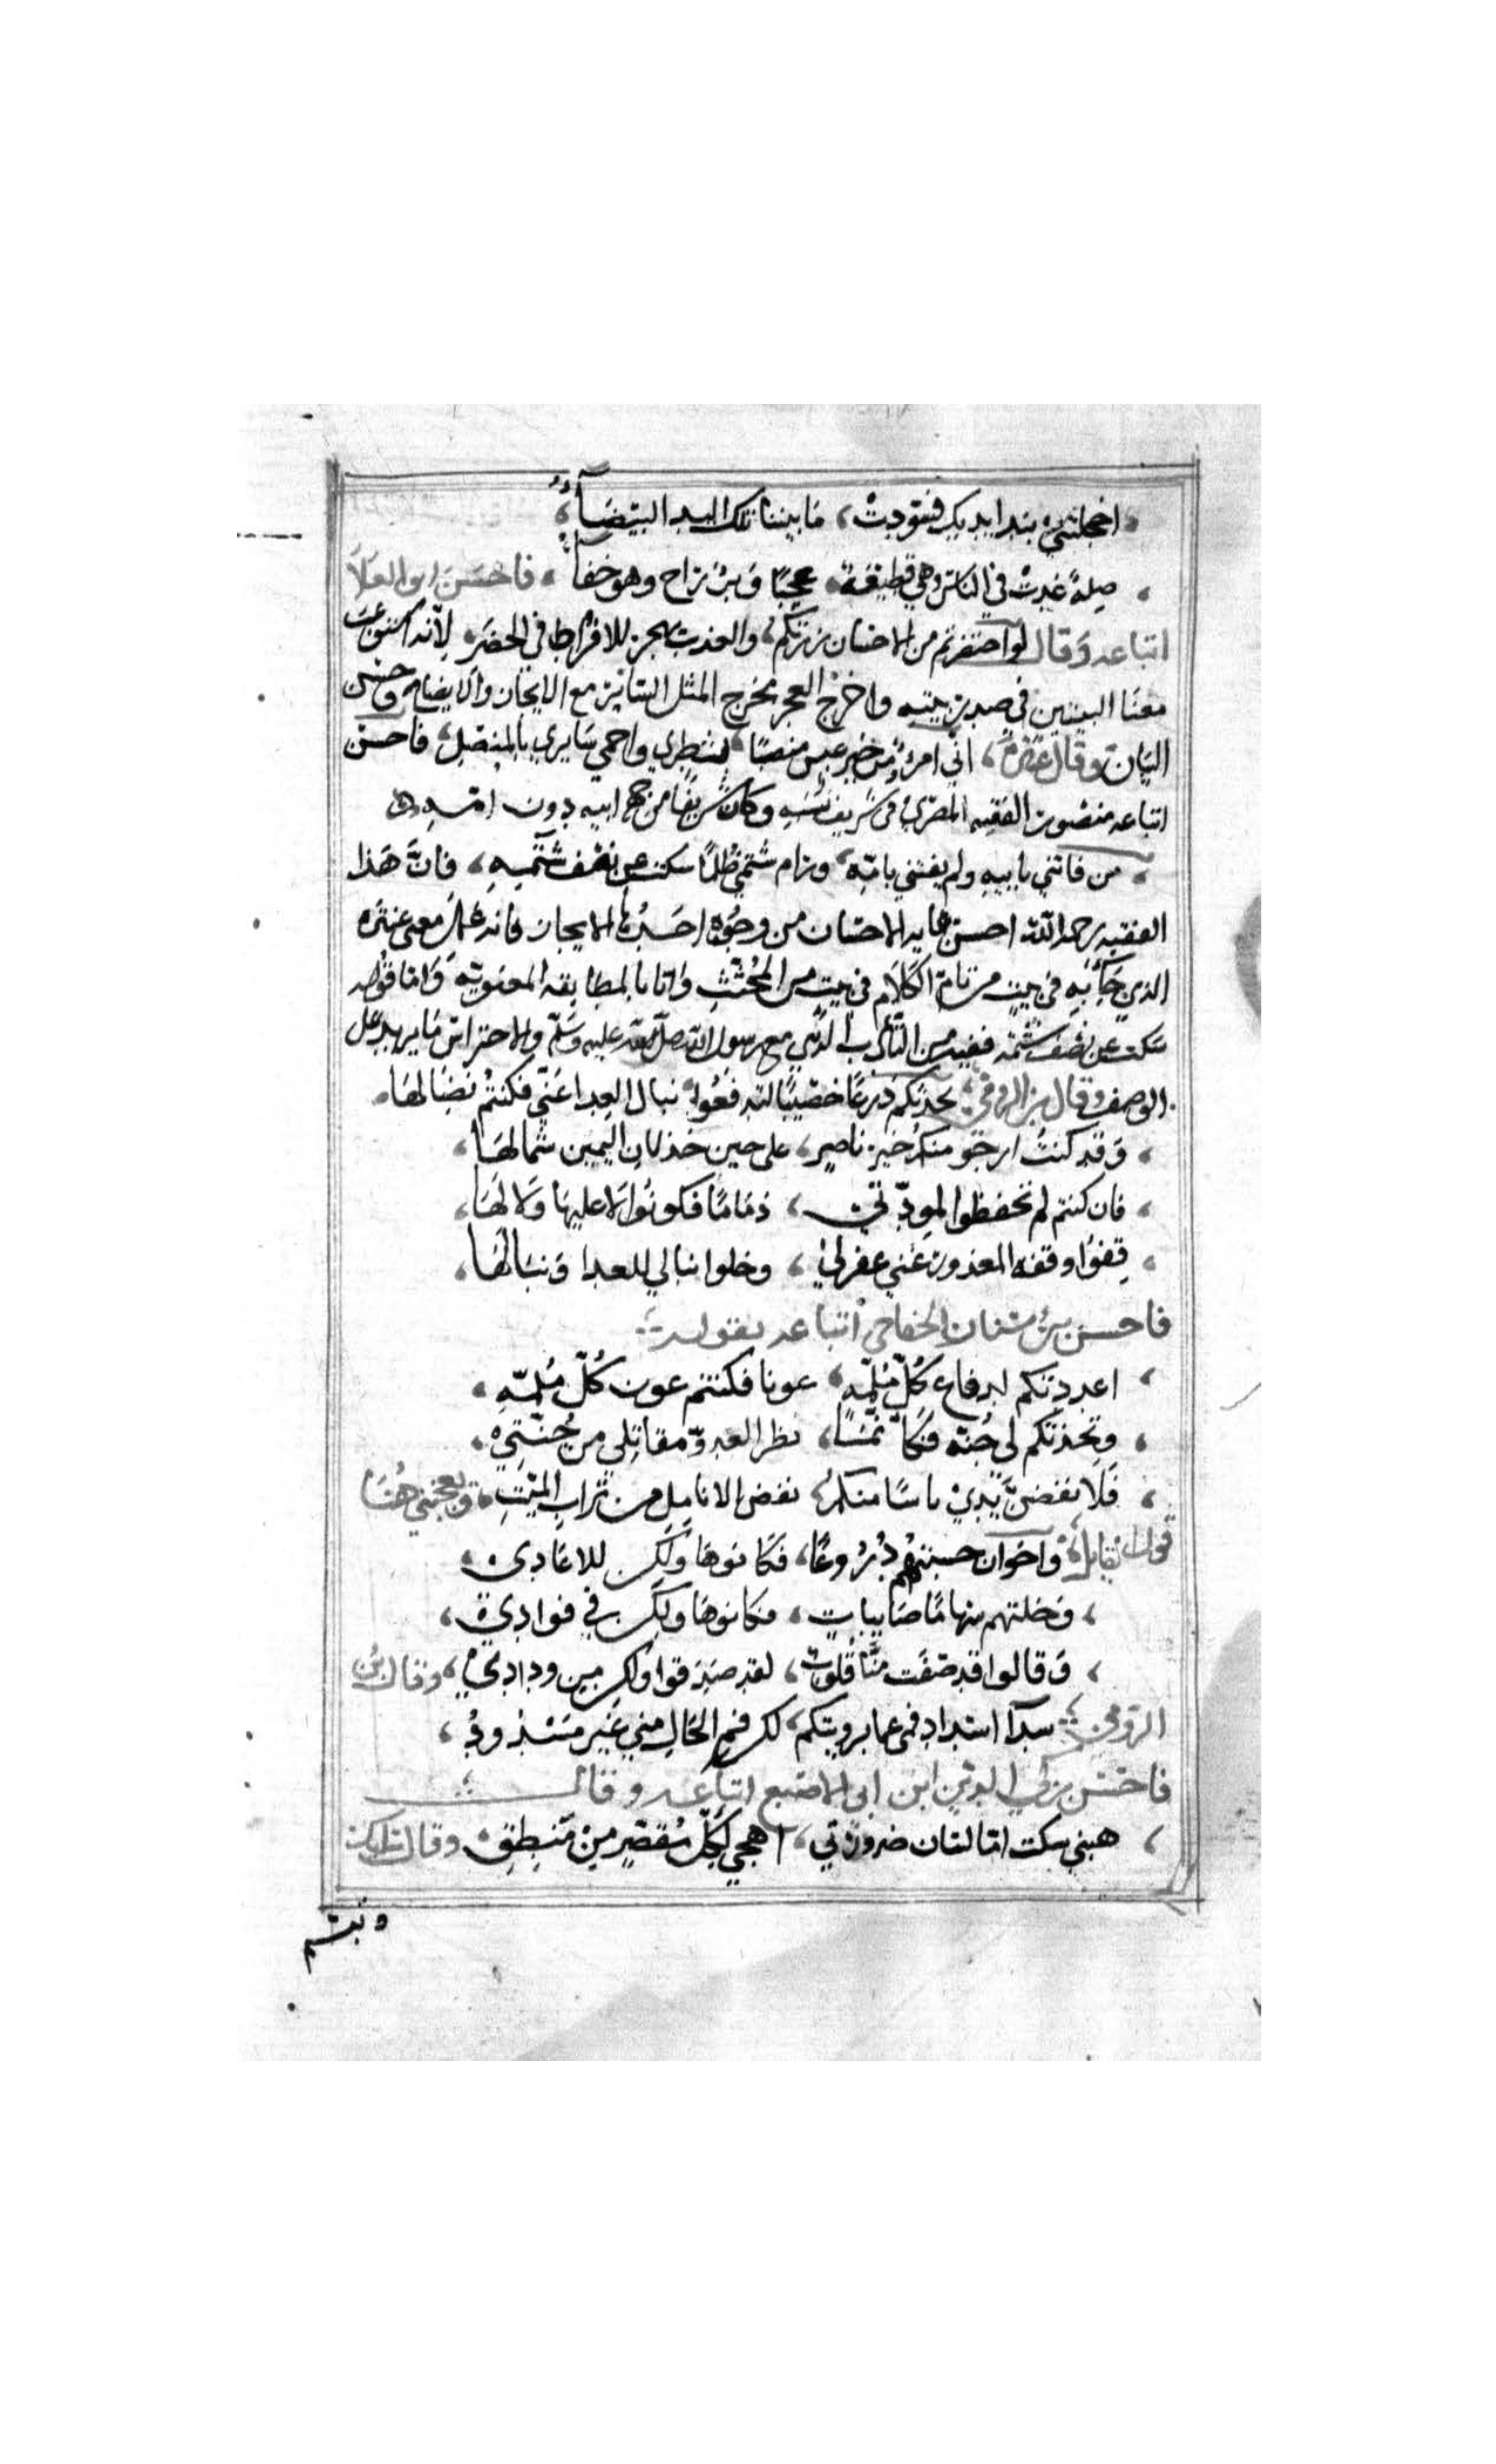 اخجلتني بندا يديك فسودت، ما بيننا تلك اليد البيضآء،
صلة غدت في الناس وهي قطيعة، عجبًا وبر راح وهو جفآء، فاحسن ابو العلا
اتباعه وقال لو اختصرتم من الاحسان زرتكم، والعذب يهجر للافراط في الخصر، لانه استوعب
معنا البيتين في صدر بيته واخرج العجز مخرج المثل الساير مع الايجاز والايضاح وحسن
البيان وقال عنتره، اني امرؤ من خير عبس منصبًا، شطري واحمي سايري بالمنصل، فاحسن
اتباعه منصور الفقيه المصري في شريف سبه وكان شريفًا من جهة ابيه دون امه
من فاتني بابيه ولم يفتني بامه، ورام شتمي ظلمًا سكت عن نصف شتمه، فان هذا
الفقيه رحمه الله احسن غاية الاحسان من وجوه احدها الايجاز فانه عمل معنى عنتره
الذي جآء به في بيت من تام الكلام في بيت من المجتث واتا بالمطابقه المعنويه واما قوله
سكت عن نصف شتمه ففيه من التأدب الذي مع رسول الله صلى الله عليه وسلم والاحتراس ما يزيد على
الوصف وقال بن الرومي، تخذتكم درعًا حصينًا لتدفعوا، نبال العدا عني فكنتم نصالها
وقد كنت ارجو منكم خير ناصر، على حين خذلان اليمين شمالها،
فان كنتم لم تحفظوا لمودتي، ذمامًا فكونوا لا عليها ولا لها،
قفوا وقفه المعذور عني بمعزل، وخلوا نبالي للعدا ونبالها،
فاحسن بن سنان الخفاجي اتباعه بقوله
اعددتكم لدفاع كل ملمه، عونا فكنتم عون كل ملمه،
وتخذتكم لي جنه فكأنما، نظر العدو مقاتلي من جنتي،
فلانفضن يدي ياسًا منكم، نفض الانامل من تراب الميت، ويعجبني هنا
قول القايل، واخوان حسبتهم دروعًا، فكانوها ولكن للاعادي،
وخلتهم سهامًا صايبات، فكانوها ولكن في فوادي،
وقالوا قد صفت منا قلوب، لقد صدقوا ولكن من ودادي، وقال بن
الرومي سدآ السداد فمي عما يريبكم، لكن فم الحال مني غير مسدود،
فاحسن زكي الدين ابن ابي الاصبع اتباعه وقال
هبني سكت اما لسان ضرورتي، اهجى لكل مقصر من منطقي، وقال